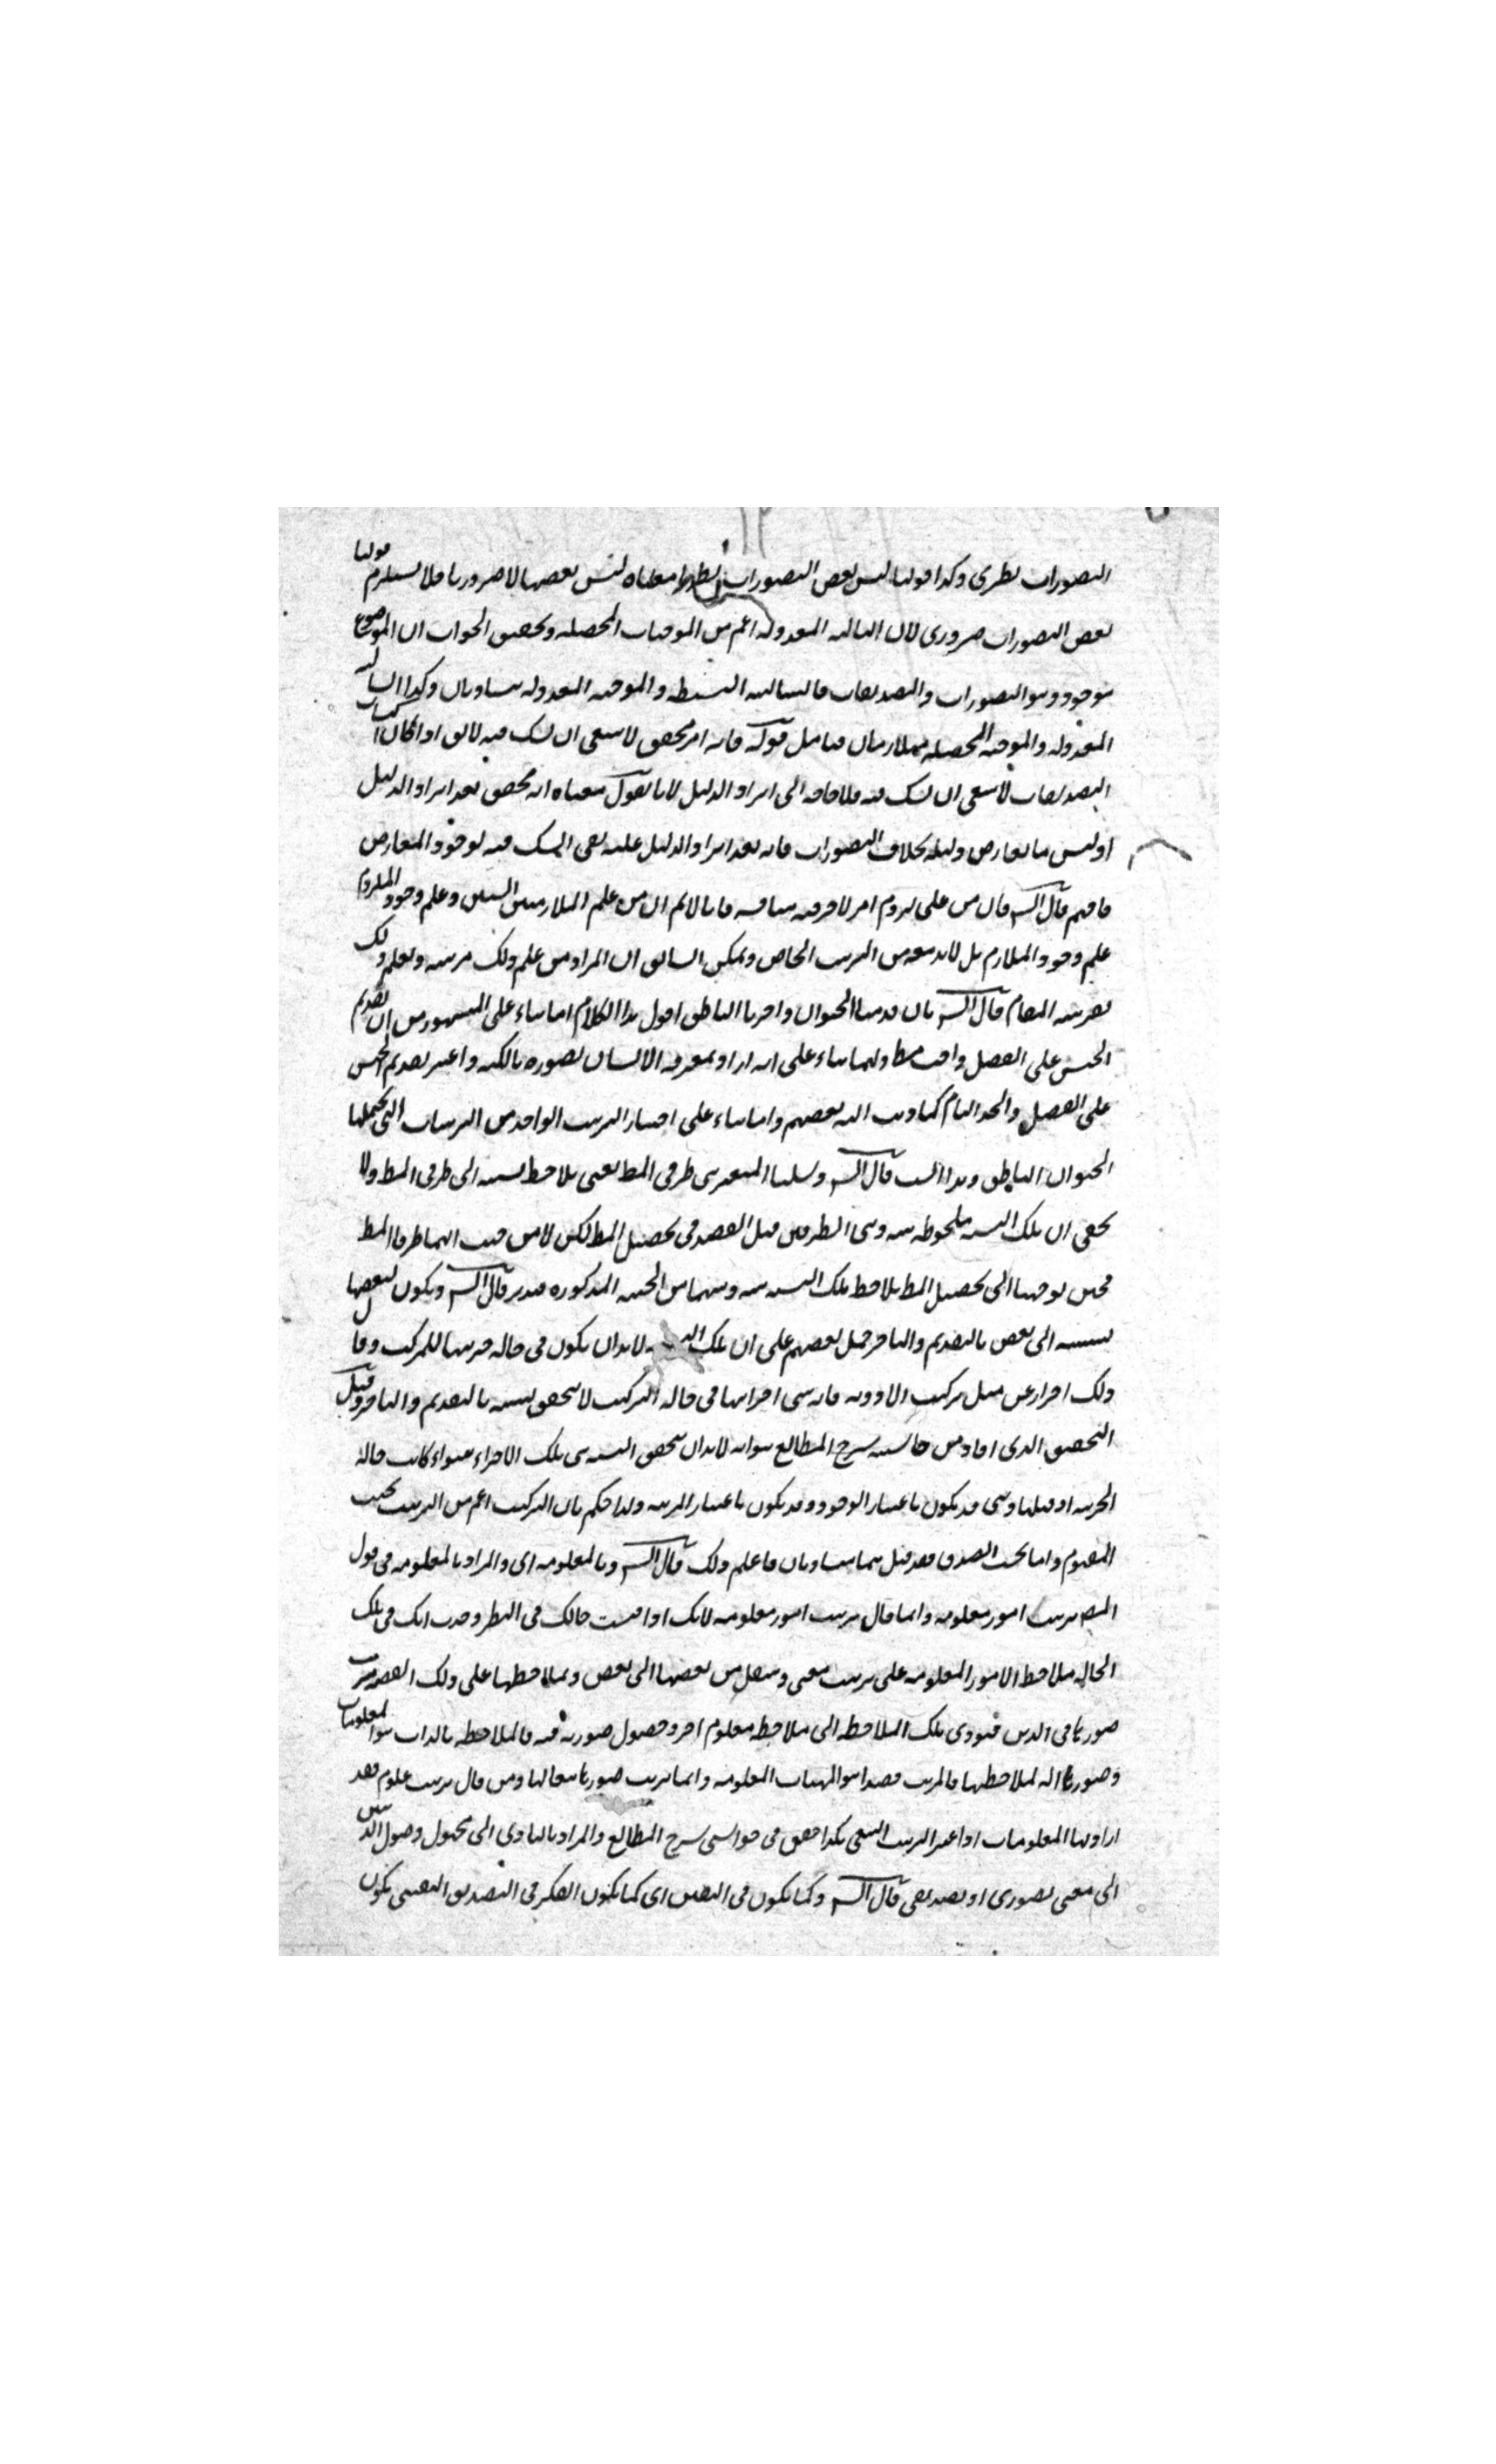 التصورات نظرى وكذا قولنا ليس بعض التصورات نظريا معناه ليس بعضها لا ضروريا فلا يستلزم قولنا
بعض التصورات ضرورى لان السالبه المعدوله اعم من الموجبات المحصله وتحقيق الجواب ان الموضوع
موجود وهو التصورات والتصديقات فالسالبه البسيطه والموجبه المعدوله متساويان وكذا السالبه
المعدوله والموجبه المحصله متلازمان فتامل قوله فانه امر محقق لا ينبغى ان يشك فيه لا يق اذا كان
التصديقات لا ينبغى ان يشك فيه فلا حاجه الى ايراد الدليل لانا نقول معناه انه محقق بعد ايراد الدليل
اذ ليس ما يعارض دليله بخلاف التصورات فانه بعد ايراد الدليل عليه بقى الشك فيه لوجود المعارض
فافهم قال الش فان من علم لزوم امر لاخر فيه مناقشه فانا لانم ان من علم الملازمه بين الشيئين وعلم وجود الملزوم
علم وجود الملازم بل لابد معه من الترتيب الخاص ويمكن ان المراد من علم ذلك مرتبه وبعلم ذلك
بقرينه المقام قال الش بان قدمنا الحيوان واخرنا الناطق اقول هذا الكلام اما بناء على المشهور من ان تقديم
الجنس على الفصل واجب مط واما بناء على انه اراد بمعرفه الانسان تصوره بالكنه واعتبر تقديم الجنس
على الفصل والحد التام كما ذهب اليه بعضهم واما بناء على اختيار الترتيب الواحد من الترتيبات التى يحتملها
الحيوان الناطق وهذا انسب قال الش وسلبا المعتبر بين طرفى المط يعنى يلاحظ نسبه الى طرفى المط ولا
يخفى ان تلك النسبه ملحوظه بينه وبين الطرفين قبل القصد فى تحصيل المط لكن لا من حيث انهما طرفا المط
فحين توجهنا الى تحصيل المط يلاحظ تلك النسبه بينه وبينهما من الحيثيه المذكوره فتدبر قال الش ويكون لبعضها
نسبه الى بعض بالتقديم والتاخر قيل بعضهم على ان تلك لابد ان يكون فى حاله جزئيتها للمركب وقال
ذلك احتراز عن مثل تركيب الادويه فانه بين اجزائها فى حاله التركيب لا يتحقق نسبه بالتقديم والتاخر وقيل
التحقيق الذى افاد من حاشيه شرح المطالع هو انه لابد ان يتحقق النسبه بين تلك الاجزاء سواء كانت حاله
الجزئيه او قبلها وهى قد يكون باعتبار الوجود وقد يكون باعتبار المرتبه ولذا حكم بان التركيب اعم من الترتيب بحسب
المفهوم واما بحسب الصدق فقد قيل هما متساويان فاعلم ذلك قال الش وبالمعلومه اى والمراد بالمعلومه فى قول
المص ترتيب امور معلومه وانما قال ترتيب امور معلومه لانك اذا فتشت حالك فى النظر وجدت انك فى تلك
الحاله ملاحظ الامور المعلومه على ترتيب معين وتنتقل من بعضها الى بعض وبملاحظتها على ذلك القصد يترتب
صورها فى الذهن فتؤدى تلك الملاحظه الى ملاحظه معلوم اخر وحصول صورته فيه فالملاحظه بالذات هو المعلومات
وصورها اله لملاحظتها فالمرتب قصدا هو المهيات المعلومه وانما ترتيب صورها تبعا لها ومن قال ترتيب علوم فقد
اراد بها المعلومات اذا عبر الترتيب هكذا حقق فى حواشى شرح المطالع والمراد بالتادى الى مجهول وصول الذهن
الى معنى تصورى او تصديقى قال الش وكما يكون فى اليقين اى كما يكون الفكر فى التصديق اليقينى يكون